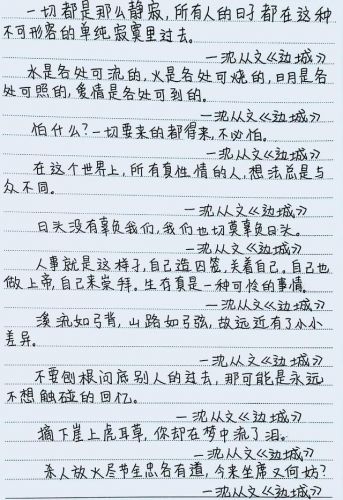 一切都是那么静寂,所有人的日子都在这种
不可形容的单纯寂寞里过去。
—沈从文《边城》
水是各处可流的,火是各处可烧的,日月是各
处可照的,爱情是各处可到的。
—沈从文《边城》
怕什么?一切要来的都得来,不必怕。
—沈从文《边城》
在这个世界上,所有真性情的人,想法总是与
众不同。
—沈从文《边城》
日头没有辜负我们,我们也切莫辜负日头。
—沈从文《边城》
人事就是这样子,自己造囚笼,关着自己。自己也
做上帝,自己来崇拜。生存真是一种可怜的事情。
—沈从文《边城》
溪流如弓背,山路如弓弦,故远近有了小小
差异。
—沈从文《边城》
不要刨根问底别人的过去,那可能是永远
不想触碰的回忆。
—沈从文《边城》
摘下崖上虎耳草,你却在梦中流了泪。
—沈从文《边城》
杀人放火尽节全忠各有道,今来坐席又何妨?
—沈从文《边城》